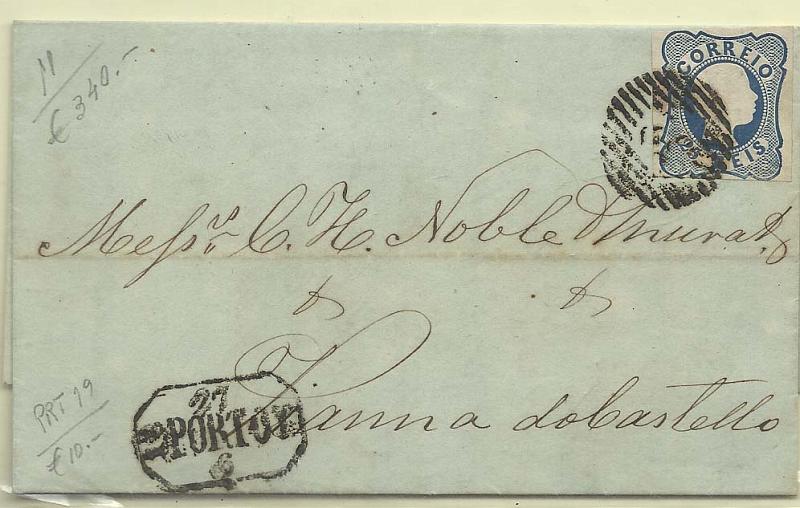 11
€ 340.-
CORREIO
REIS
Messrs. C. H. Noble & Murat.
Vianna do Castello
27
PORTO
6
PRT 19
€ 10.-